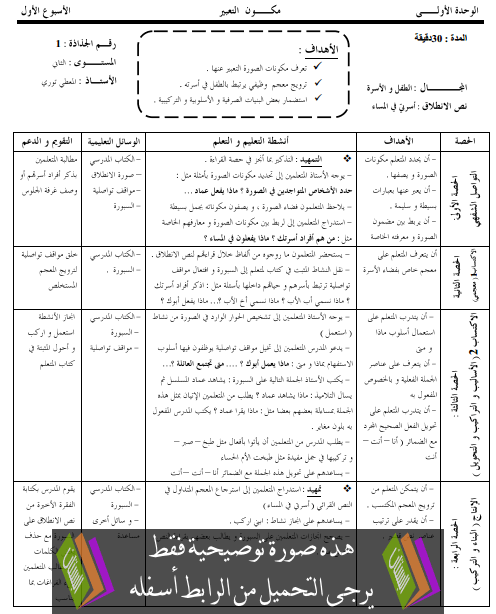 الوحدة الأولى
مكـــون التعبير
الأسبوع الأول
المدة : 30دقيقة
المجال : الطفل و الأسرة
نص الانطلاق : أسرتي في المساء
الأهداف :
تعرف مكونات الصورة التعبير عنها.
ترويج معجم وظيفي يرتبط بالطفل في أسرته .
استضمار بعض البنيات الصرفية و الأسلوبية و التركيبية .
رقم الجذاذة : 1
المستوى : الثاني
الأستاذ : المعطي توري
الحصة
الأهداف
أنشطة التعليم و التعلم
الوسائل التعليمية
التقويم و الدعم
التواصل الشفهي
الحصة الأولى:
– أن يحدد المتعلم مكونات
الصورة و يصفها .
– أن يعبر عنها بعبارات
بسيطة و سليمة .
– أن يربط بين مضمون
الصورة و معرفته الخاصة
التمهيد : التذكير بما أنجز في حصة القراءة .
– يوجه الأستاذ المتعلمين إلى تحديد مكونات الصورة بأمثلة مثل :
حدد الأشخاص المتواجدين في الصورة ؟ ماذا يفعل عماد ...
– يلاحظ المتعلمون فضاء الصورة ، و يصفون مكوناته بجمل بسيطة
– استدراج المتعلمين إلى لربط بين مكونات الصورة و معارفهم الخاصة
مثل : من هم أفراد أسرتك ؟ ماذا يفعلون في المساء ؟
– الكتاب المدرسي
– صورة الانطلاق
– مواقف تواصلية
– السبورة
مطالبة المتعلمين
بذكر أفراد أسرهم أو
وصف غرفة الجلوس
الاكتساب 1 (معجمي)
الحصة الثانية
أن يتعرف المتعلم على
معجم خاص بفضاء الأسرة
– يستحضر المتعلمون ما روجوه من ألفاظ خلال قراءتهم لنص الانطلاق .
– نقل النشاط المثبت في كتاب المتعلم إلى السبورة و افتعال مواقف
تواصلية ترتبط بأسرهم و حياتهم داخلها بأسئلة مثل : اذكر أفراد أسرتك
؟ ماذا نسمي أب الأب ؟ ماذا نسمي أخ الأب ؟... ماذا يفعل أبوك ؟
– الكتاب المدرسي
– السبورة .
خلق مواقف تواصلية
لترويج المعجم
المستخلص
الاكتساب 2 (الأساليب و التراكيب و التحويل )
الحصة الثالثة :
– أن يتدرب المتعلم على
استعمال أسلوب ماذا
و متى
– أن يتعرف على عناصر
الجملة الفعلية و بالخصوص
المفعول به
– أن يتدرب المتعلم على
تحويل الفعل الصحيح المجرد
مع الضمائر ( أنا – أنت –
أنت
– يوجه الأستاذ المتعلمين إلى تشخيص الحوار الوارد في الصورة من نشاط
( استعمل )
– يدعو المدرس المتعلمين إلى تخيل مواقف تواصلية يوظفون فيها أسلوب
الاستفهام بماذا و متى : ماذا يعمل أبوك ؟ .... متى تجتمع العائلة ؟...
– يكتب الأستاذ الجملة التالية على السبورة : يشاهد عماد المسلسل ثم
يسأل التلاميذ : ماذا يشاهد عماد ؟ يطلب من المتعلمين الإتيان بمثل هذه
الجملة بمساءلة بعضهم بعضا مثل : ماذا يقرأ عماد ؟ يكتب المدرس المفعول
به بلون مغاير .
– يطلب المدرس من المتعلمين أن يأتوا بأفعال مثل طبخ – صبر –
و تركيبها في جمل مفيدة مثل طبخت الأم الحساء
– يساعدهم على تحويل هذه الجملة مع الضمائر أنا – أنت – أنت
– الكتاب المدرسي
– السبورة
– مواقف تواصلية
انجاز الأنشطة
استعمل و اركب
و أحول المثبتة في
كتاب المتعلم
الإنتاج ( البناء و التركيب )
الحصة الرابعة :
– أن يتمكن المتعلم من
ترويج المعجم المكتسب .
– أن يقدر على ترتيب
تمهيد : استدراج المتعلمين إلى استرجاع المعجم المتداول في
النص القرائي ( أسرتي في المساء )
– يساعدهم على انجاز نشاط : ابني اركب .
– الكتاب المدرسي
– السبورة
– وسائل أخرى
مساعدة
يقوم المدرس بكتابة
الفقرة الأخيرة من
نص الانطلاق على
السبورة مع حذف
هذه صورة توضيحية فقط
يرجى التحميل من الرابط أسفله